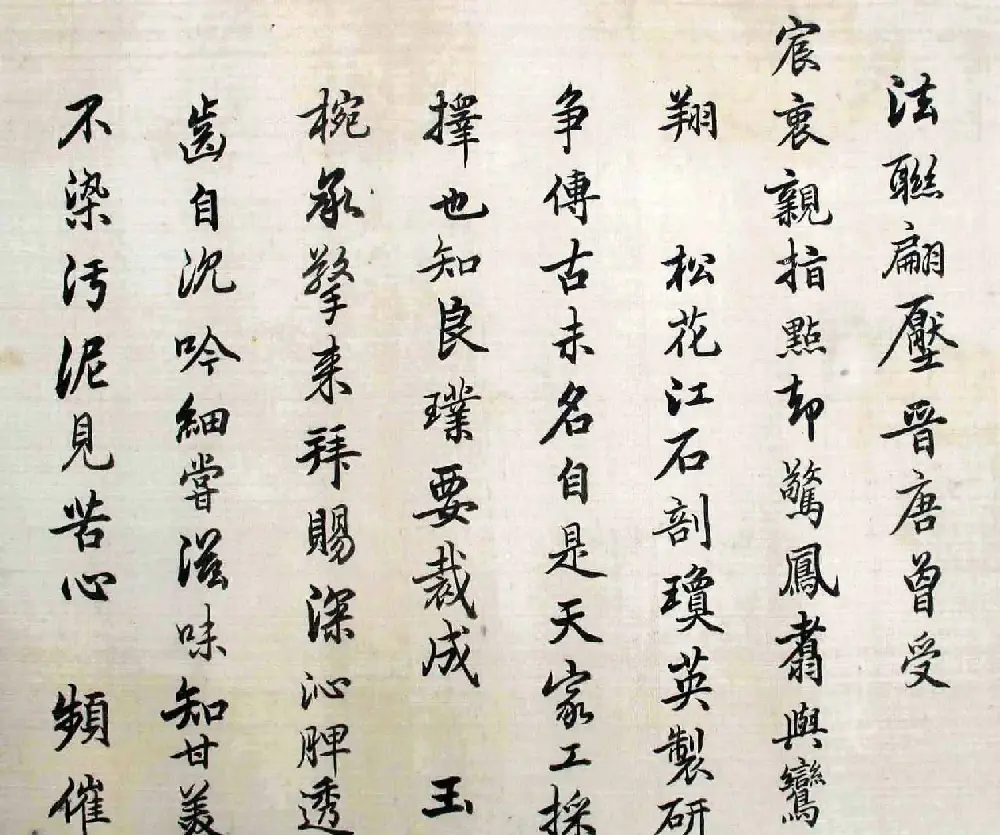 法聯翩壓晉唐曾受
宸衷親指點却驚鳳翥與鸞
翔 松花江石剖瓊英製研
争傳古未名自是天家工採
擇也知良璞要裁成 玉
椀承擎来拜賜深沁脾透
齒自沉吟細嘗滋味知甘美
不染污泥見苦心 頻催